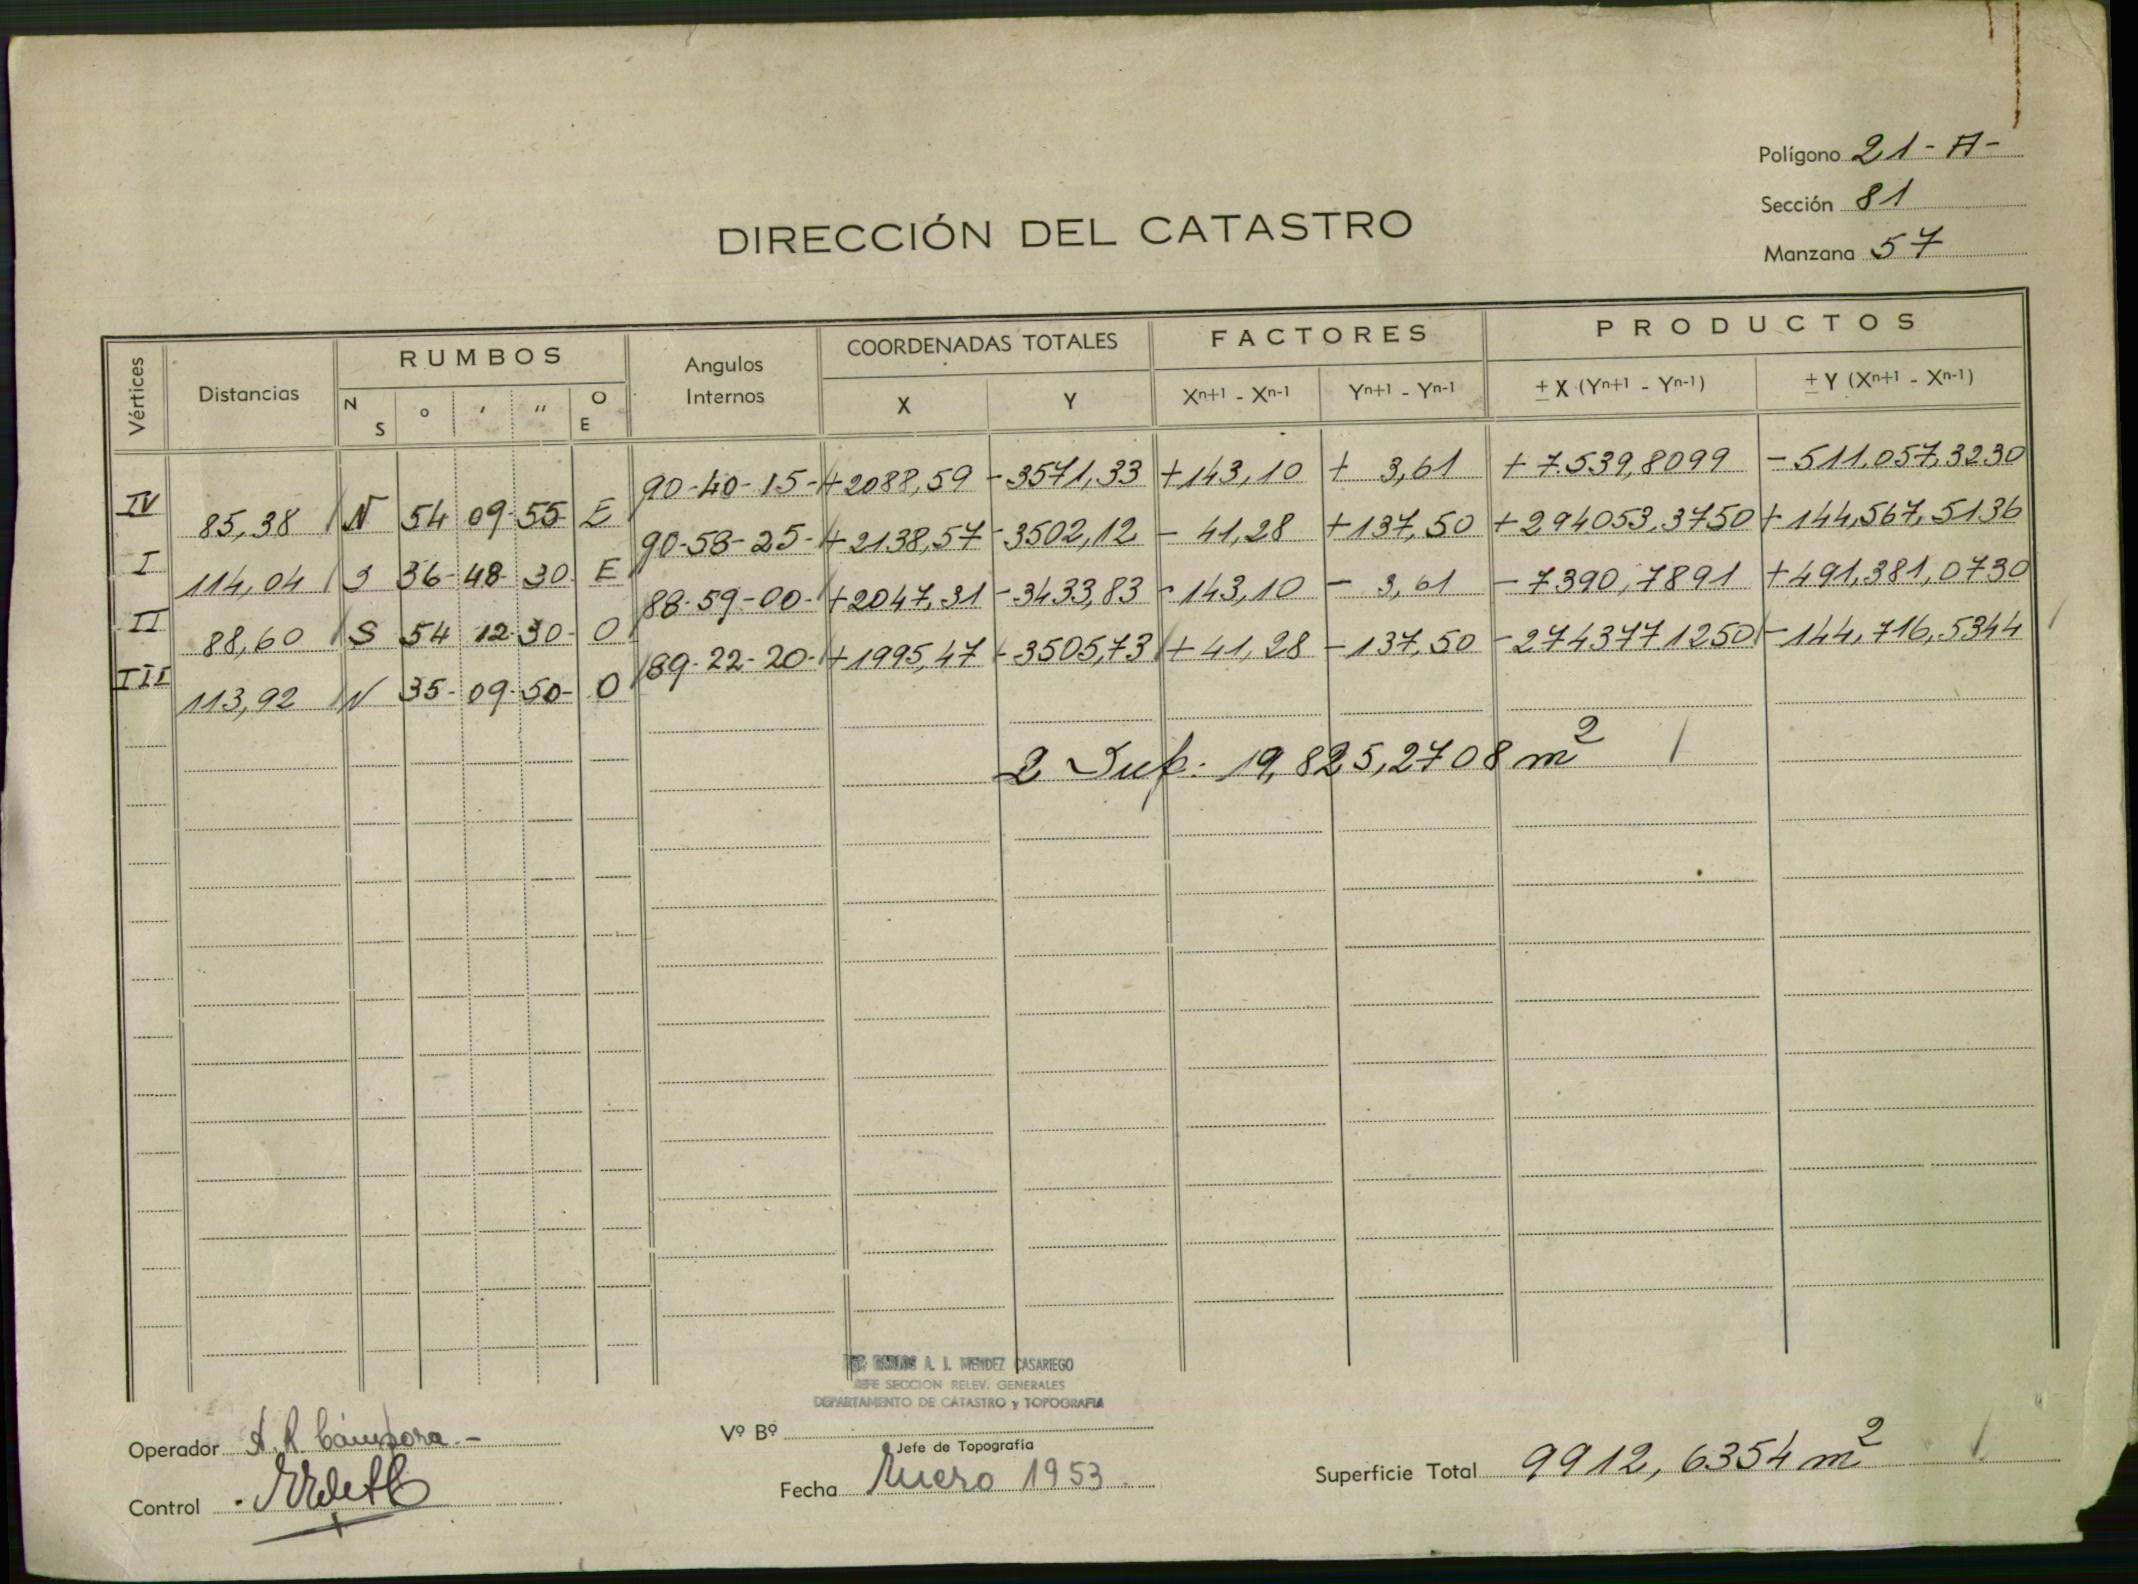 Polígono 21-A-
Sección 81
Manzana 57
DIRECCIÓN DEL CATASTRO
Vértices Distancias RUMBOS Angulos Internos COORDENADAS TOTALES FACTORES PRODUCTOS
N S ° ′ ″ O E X Y Xn+1 - Xn-1 Yn+1 - Yn-1 ± X (Yn+1 - Yn-1) ± Y (Xn+1 - Xn-1)
IV 90-40-15- +2088,59 -3571,33 +143,10 + 3,61 +7.539,8099 -511.057,3230
85,38 N 54 09-55 E
I 90-58-25- +2138,57 -3502,12 - 41,28 +137,50 +294053,3750 +144,567,5136
114,04 S 36-48-30 E
II 88-59-00- +2047,31 -3433,83 -143,10 - 3,61 -7390,7891 +491,381,0730
88,60 S 54 12-30- O
III 89-22-20- +1995,47 -3505,73 +41,28 -137,50 -2743771250 -144,716,5344
113,92 N 35-09-50- O
2 Sup: 19,825,2708 m²
A. I. MENDEZ CASARIEGO
JEFE SECCION RELEV. GENERALES
DEPARTAMENTO DE CATASTRO y TOPOGRAFIA
Operador A. R. Cámpora.-
Vº Bº
Jefe de Topografía
Control
Fecha Enero 1953.
Superficie Total 9912,6354 m²